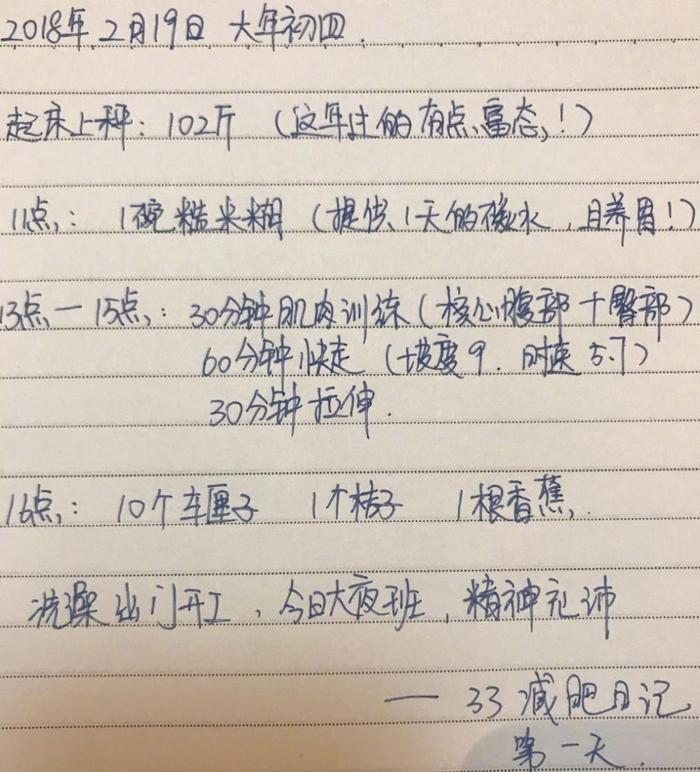 2018年.2月19日 大年初四.
起床上秤：102斤 （这年过的有点富态！）
11点：1碗糙米糊（提供1天的碳水，且养胃！）
13点—15点：30分钟肌肉训练（核心腹部+臀部）
60分钟快走（坡度9. 时速5.7）
30分钟拉伸.
16点：10个车厘子 1个桔子 1根香蕉.
洗澡出门开工，今日大夜班，精神充沛
— 33减肥日记
第一天.